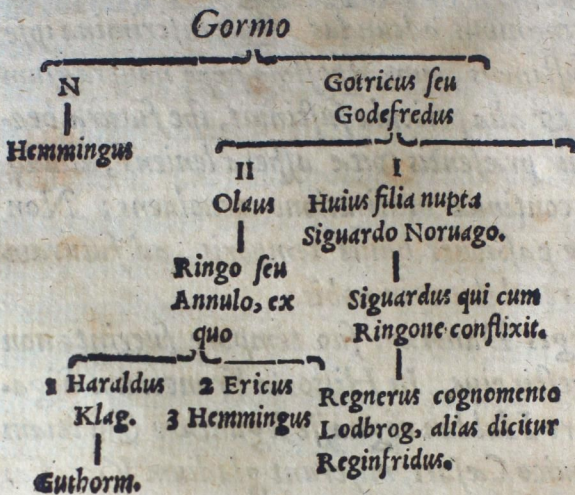 Gormo
N
Hemmingus
Gotricus ſeu
Godefredus
II
Olaus
Ringo ſeu
Annulo, ex
quo
1 Haraldus
Klag.
Guthorm.
2 Ericus
3 Hemmingus
I
Huius filia nupta
Siguardo Noruago.
Siguardus qui cum
Ringone conflixit.
Regnerus cognomento
Lodbrog, alias dicitur
Reginfridus.